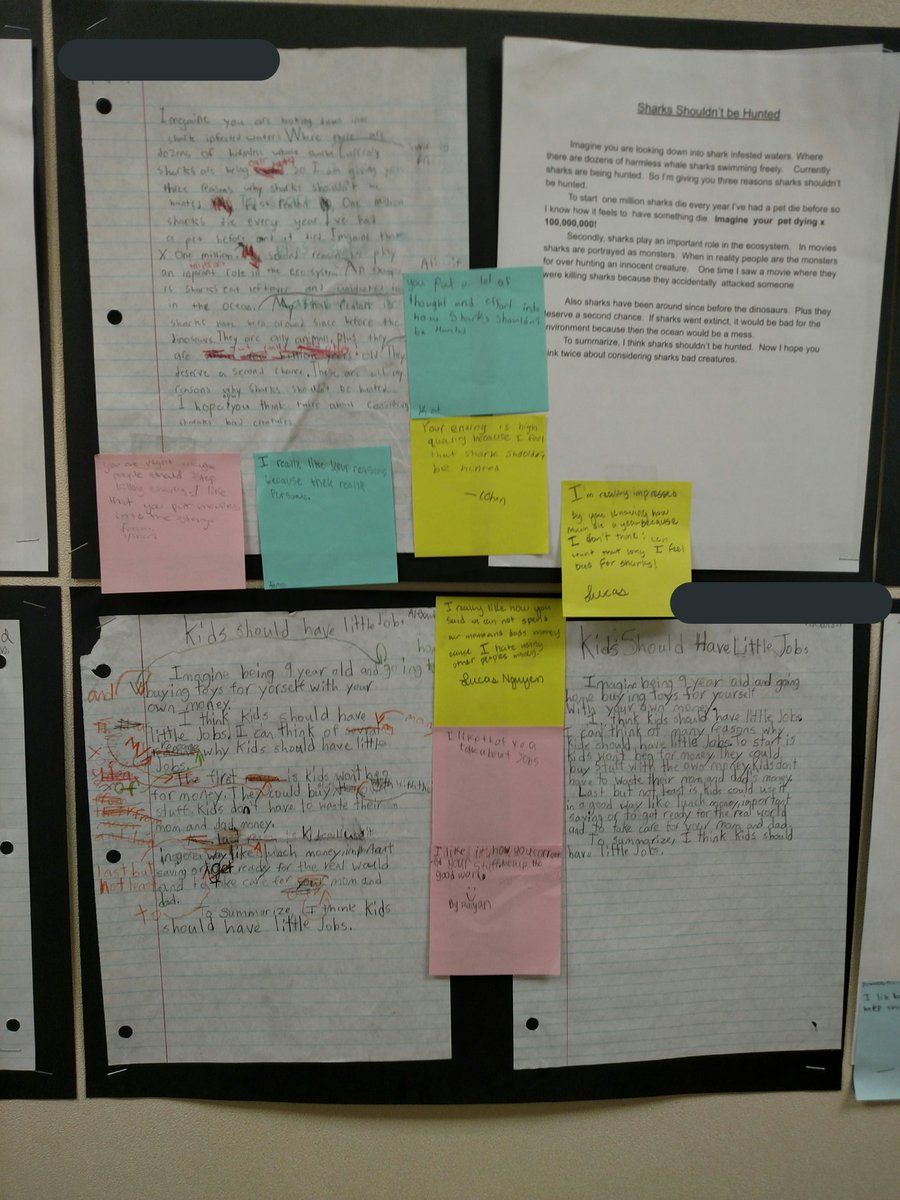 Imgaine you are looking down into
shark infested waters Where there are
dozens of
sharks are being so I am giving you
three reasons why sharks shouldn't be
hunted One million
sharks die every year I've had
a pet before and it died. Imgaine that
X One million. My second reason is play
an important role in the ecosystem. An
is sharks eat leftover and
in the ocean.
sharks have been around since before the
dinosaurs. They are only animals. Plus they
are old They
deserve a second chance. These are all my
reasons why sharks shouldn't be hunted
I hope you think twice about considering
sharks bad creatures
Sharks Shouldn't be Hunted
Imagine you are looking down into shark infested waters. Where
there are dozens of harmless whale sharks swimming freely. Currently
sharks are being hunted. So I'm giving you three reasons sharks shouldn't
be hunted.
To start one million sharks die every year.I've had a pet die before so
I know how it feels to have something die. Imagine your pet dying x
100,000,000!
Secondly, sharks play an important role in the ecosystem. In movies
sharks are portrayed as monsters. When in reality people are the monsters
for over hunting an innocent creature. One time I saw a movie where they
were killing sharks because they accidentally attacked someone
Also sharks have been around since before the dinosaurs. Plus they
deserve a second chance. If sharks went extinct, it would be bad for the
nvironment because then the ocean would be a mess.
To summarize, I think sharks shouldn't be hunted. Now I hope you
ink twice about considering sharks bad creatures.
you put a lot of
thought and effort into
how Sharks Shouldn't
be Hunted
Your ending is high
quality because I feel
that shark shouldn't
be hunted
you are right
people should stop
killing sharks. I like
that you put movies
into the story.
from
I really like your reasons
because their really
Pursuasive.
I'm really impresses
by you knowing how
many die a year because
I don't think i can
count that long. I feel
bad for sharks!
Lucas
Kids should have little Jobs
Imagine being 9 year old and going to
and
buying toys for yorself with your
own money.
I think Kids should have
little Jobs. I can think of
reasons why Kids should have little
Jobs.
The first is Kids won't beg
for money. They could buy
stuff. Kids don't have to waste their
mom and dad money.
last but
not least
in good way like lunch money, important
saving or get ready for the real would
and to take care for your mom and
dad.
To summarize, I think Kids
should have little Jobs.
I really like how you
said us can not spend
our moms and dads money
cause I hate using
other peoples money.
Lucas Nguyen
I like that you
talk about Jobs
I like it how you correct
of your stuff keep up the
good work.
By Raiyan
Kids Should Have Little Jobs
Imagine being 9 year old and going
home buying toys for yourself
with your own money.
I think Kids should have little Jobs.
I can think of many reasons why
Kids should have little Jobs. To start is
Kids won't beg for money. They could
buy stuff with the own money. Kids don't
have to waste their mom and dad's money.
Last but not least is Kids could use it
in a good way like lunch money, important
saving or to get ready for the real world
and to take care for your mom and dad.
To summarize, I think Kids should
have little Jobs.